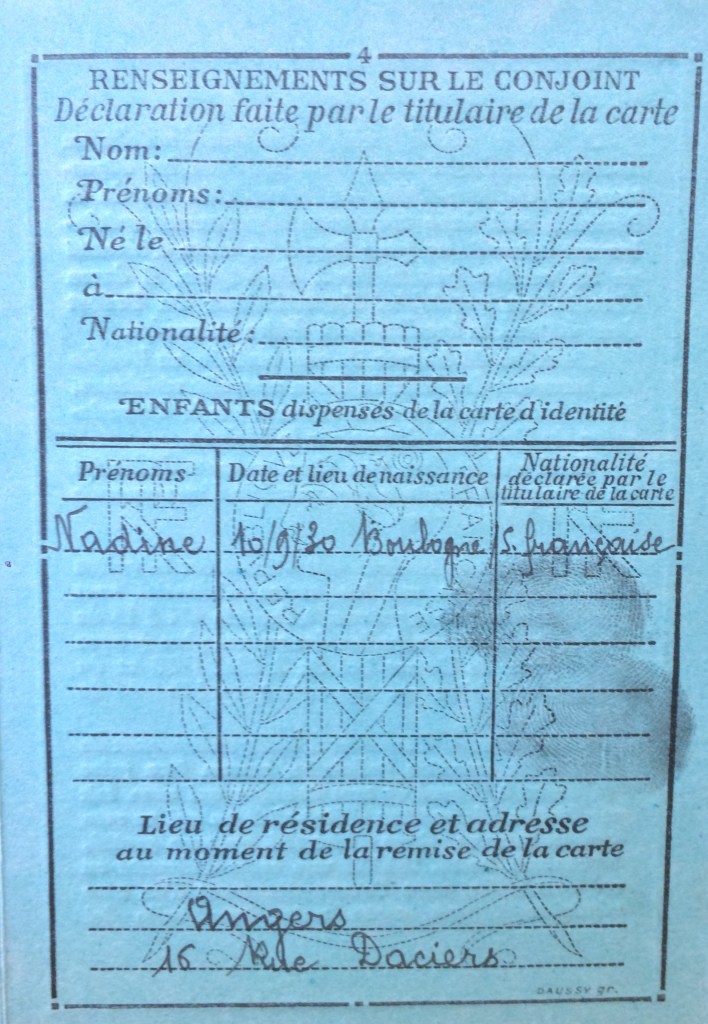 4
RENSEIGNEMENTS SUR LE CONJOINT
Déclaration faite par le titulaire de la carte
Nom:
Prénoms:
Né le
à
Nationalité:
ENFANTS dispensés de la carte d'identité
Prénoms Date et lieu de naissance Nationalité déclarée par le titulaire de la carte
Nadine 10/9/30 Boulogne/S. française
Lieu de résidence et adresse
au moment de la remise de la carte
Angers
16 Rue Daciers
DAUSSY gr.